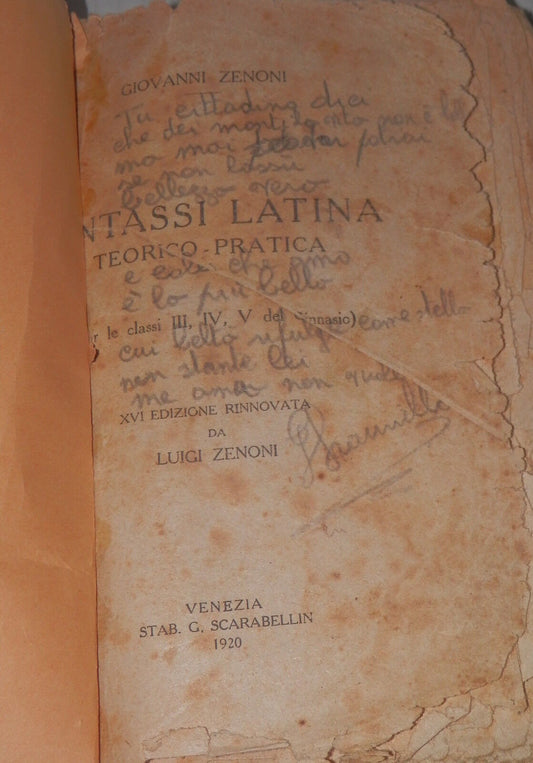 GIOVANNI ZENONI
Tu cittadina dici
che dei morti la vita non è
ma mai potrai
se non lassù
bellezza vera
NTASSI LATINA
TEORICO-PRATICA
e colei che amo
è la più bella
r le classi III, IV, V del Ginnasio)
cui beltà rifulge come stella
non stante lei
me amar non vuole
XVI EDIZIONE RINNOVATA
DA
LUIGI ZENONI
VENEZIA
STAB. G. SCARABELLIN
1920